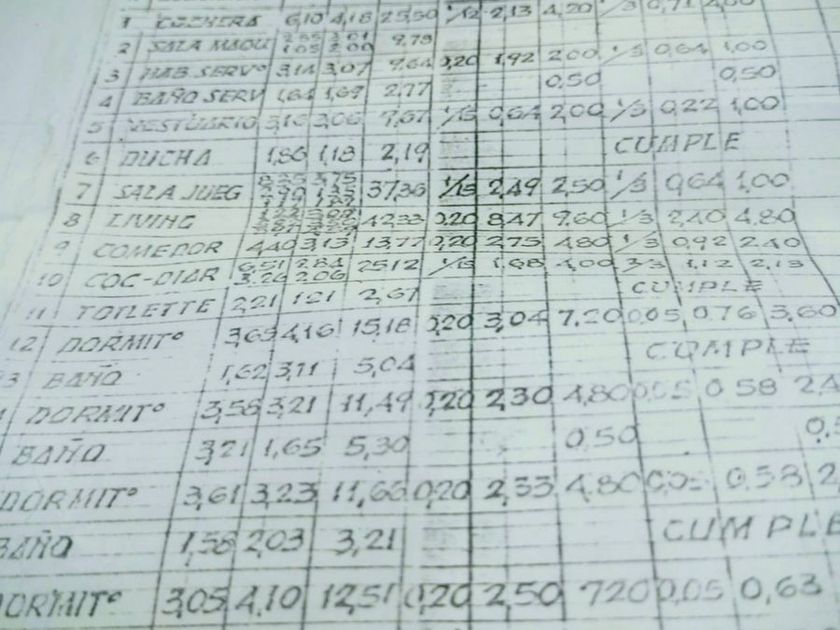 1 COCHERA 6,10 4,18 25,50 1/12 2,13 4,20 1/3 0,71
2 SALA MAQU 9,78
3 HAB. SERVº 3,14 3,07 9,64 0,20 1,92 2,00 1/3 0,64 1,00
4 BAÑO SERV 1,64 1,69 2,77 0,50 0,50
5 VESTUARIO 3,16 3,06 9,67 1/15 0,64 2,00 1/3 0,22 1,00
6 DUCHA 1,86 1,18 2,19 CUMPLE
7 SALA JUEG 37,36 1/15 2,49 2,50 1/3 0,64 1,00
8 LIVING 42,33 0,20 8,47 9,60 1/3 2,40 4,80
9 COMEDOR 4,40 3,13 13,77 0,20 2,75 4,80 1/3 0,92 2,40
10 COC-DIAR 6,51 2,84 3,26 2,06 25,12 1/15 1,68 4,00 1,12 2,13
11 TOILETTE 2,21 1,21 2,67 CUMPLE
12 DORMITº 3,65 4,16 15,18 0,20 3,04 7,20 0,05 0,76 3,60
3 BAÑO 1,62 3,11 5,04 CUMPLE
DORMITº 3,58 3,21 11,49 0,20 2,30 4,80 0,05 0,58
BAÑO 3,21 1,65 5,30 0,50
DORMITº 3,61 3,23 11,66 0,20 2,33 4,80 0,05 0,58
BAÑO 1,58 2,03 3,21 CUMPLE
DORMITº 3,05 4,10 12,51 0,20 2,50 7,20 0,05 0,63